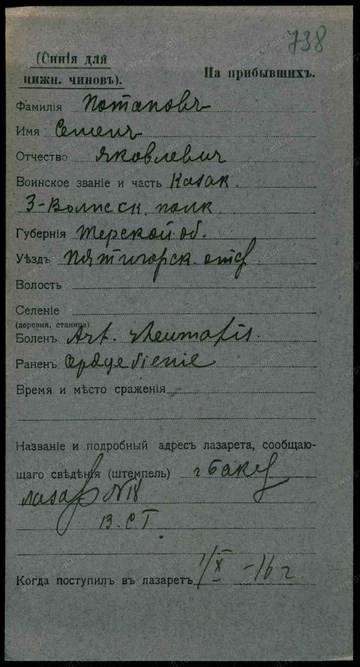 738
(Синія для
нижн. чиновъ).
На прибывшихъ.
Фамилія Потаповъ
Имя Семенъ
Отчество Яковлевич
Воинское званіе и часть Казак.
3-Волгск. полк
Губернія Терской об.
Уѣздъ Пятигорск. отд
Волость
Селеніе
(деревня, станица)
Боленъ Art. rheumatis.
Раненъ Сердцебіеніе
Время и мѣсто сраженія
Названіе и подробный адресъ лазарета, сообщаю-
щаго свѣдѣнія (штемпель) г Баку
лазар № 18
В. С Г
Когда поступилъ въ лазаретъ 1/X -16 г